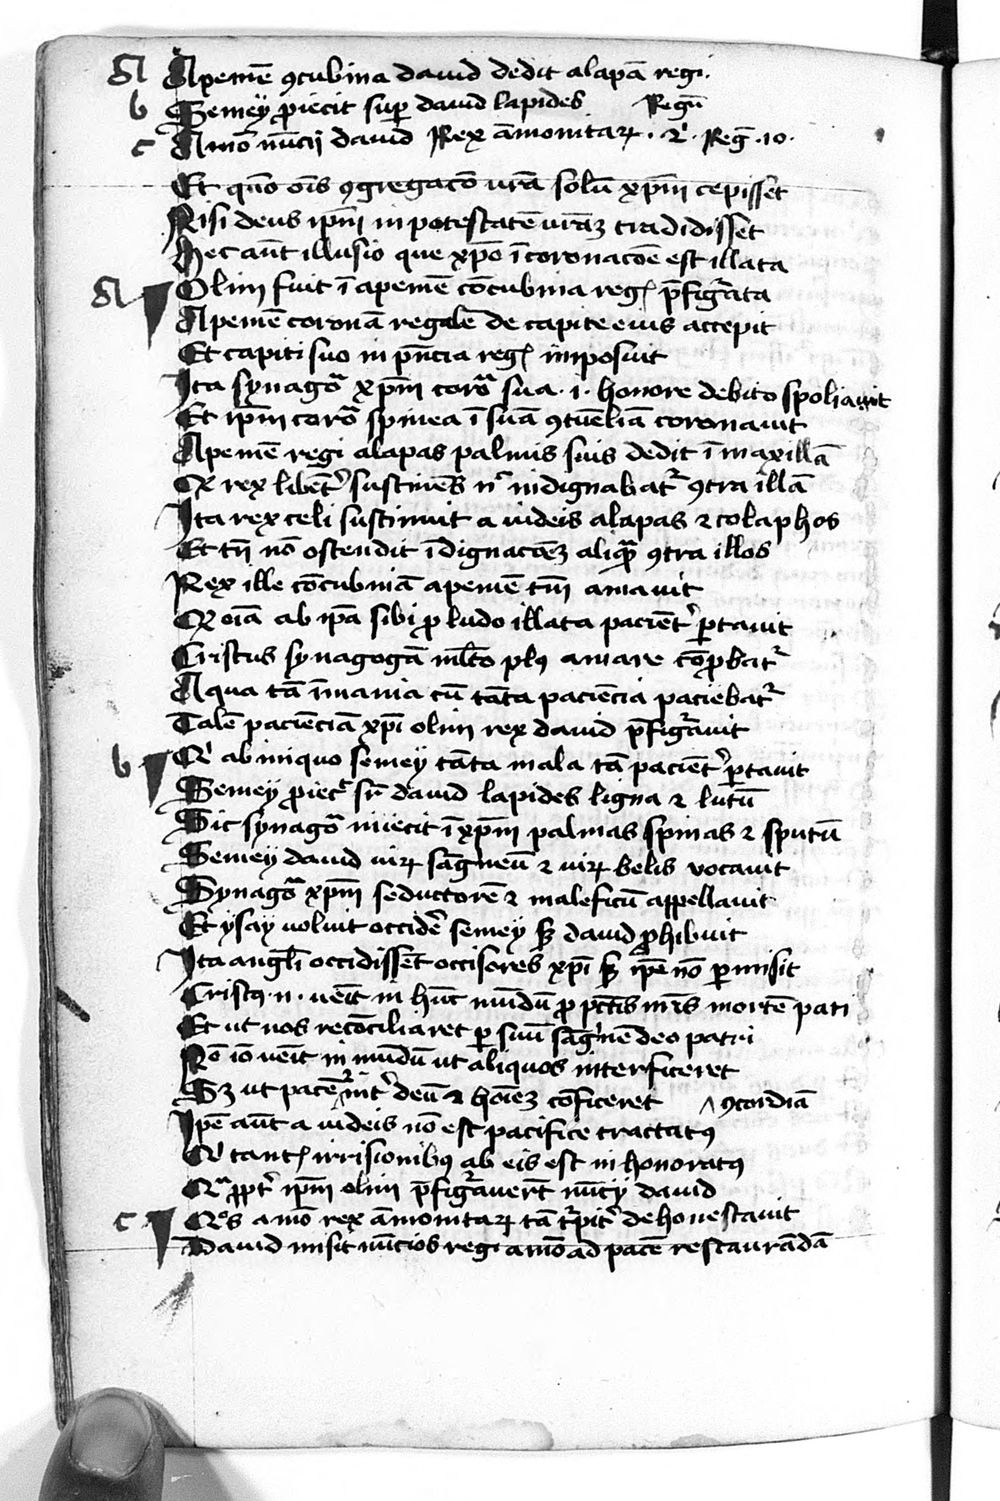 a Apemē ꝯcubina dauid dedit alapā regi.
b Semey ꝓiecit suꝑ dauid lapides Regū
c Amō nūcij dauid Rex āmonitaꝝ . 2ͥ . Reḡ .10.
Et quō oīs ꝯgregacō vrā solū xp̄m cepisset
Nisi deus ip̄m in potestatē vrāꝫ tradidisset
Hec aūt illusio que xp̄o ī coronacōe est illata
a Olim fuit ī apemē cōcubina regꝭ p̄figᷓata
Apemē coronā regalē de capite eius accepit
Et capiti suo in pn̄cia regꝭ imposuit
Ita synagoᷓ xp̄m coroᷓ sua .i. honore debito spoliauit
Et ip̄m coroᷓ spinea ī suā ꝯtūeliā coronauit
Apemē regi alapas palmis suis dedit ī maxillā
Et rex libētͬ sustinēs nͨ indignabatᷣ ꝯtra illā
Ita rex celi sustinuit a iudeis alapas ⁊ colaphos
Et tn̄ nō ostendit īdignacōeꝫ aliqᷓ ꝯtra illos
Rex ille cōcubinā apemē tm̄ amauit
Qͩ oīa ab ip̄a sibi ꝓ ludo illata paciētͬ ꝑtauit
Cristus synagogā ml̄to plꝰ amare cōꝓbatᷣ
A qua tā īmania cū tāta paciēcia paciebatᷣ
Talē paciēciā xp̄i olim rex dauid p̄figᷓauit
b Qͥ ab iniquo semey tāta mala tā paciētͬ ꝑtauit
Semey ꝓiecͭ sr̄ dauid lapides ligna ⁊ lutū
Sic synagoᷓ iniecit ī xp̄m palmas spinas ⁊ sputū
Semey dauid uiꝝ sāgineū ⁊ uiꝝ belis vocauit
Synagoᷓ xp̄m seductorē ⁊ maleficū appellauit
Et ysay uoluit occidē semey sꝫ dauid ꝓhibuit
Ita angl̄i occidissēt occisores xp̄i sꝫ ip̄e nō ꝑmisit
Cristꝰ .n. uēit in hūc mūdū ꝓ pc̄cis nr̄is mortē pati
Et ut nos recōciliaret ꝑ suū sāgͥnē deo patri
Nō iō uēit in mūdū ut aliquos interficeret
Sꝫ ut pacē ^ intͬ deū ⁊ hoīeꝫ cōficeret ^ ꝯcordiā
Ip̄e aūt a iudeis nō est pacifice tractatꝰ
Sꝫ tantꝭ irrisionibꝰ ab eis est inhonoratꝰ
Qᷓꝓptͬ ip̄m olim p̄figᷓauerūt nūcij dauid
c Qͦs amō rex āmonitaꝝ tā tᷣpitͬ dehonestauit
Dauid misit nūcios regi amō ad pacē restaurādā